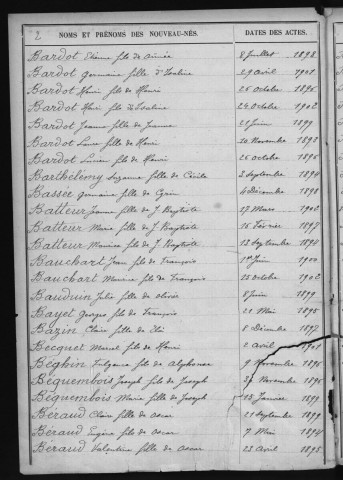 2
NOMS ET PRÉNOMS DES NOUVEAU-NÉS. DATES DES ACTES.
Bardot Etienne fils de Aimée 8 Juillet 1892
Bardot Germaine fille d'Ovuline 29 Avril 1901
Bardot Henri fils de Henri 26 Octobre 1896
Bardot Henri fils de 24 Octobre 1902
Bardot Jeanne fille de Jeanne 21 Juin 1899
Bardot Laure fille de Henri 20 Novembre 1892
Bardot Lucien fils de Henri 26 Octobre 1895
Barthélémy Suzanne fille de Cécile 3 Septembre 1894
Bassée Germaine fille de Cyrin 4 Décembre 1898
Batteur Jeanne fille de J. Baptiste 17 Mars 1902
Batteur Marie fille de J. Baptiste 16 Février 1897
Batteur Maurice fils de J. Baptiste 12 Septembre 1894
Bauchart Jean fils de François 1er Juin 1900
Bauchart Maurice fils de François 25 Octobre 1902
Bauduin Julie fille de Olivier 8 Juin 1899
Bayet Georges fils de François 21 Mai 1895
Bazin Claire fille de Eli 8 Décembre 1897
Becquet Marcel fils de Henri 2 Avril 1901
Béghin Fulgence fils de Alphonse 9 Novembre 1896
Béquembois Joseph fils de Joseph Novembre 1896
Béquembois Marie fille de Joseph 13 Janvier 1899
Béraud Claire fille de Oscar 21 Septembre 1899
Béraud Eugène fils de Oscar 7 Mai 1894
Béraud Valentine fille de Oscar 23 Avril 1895